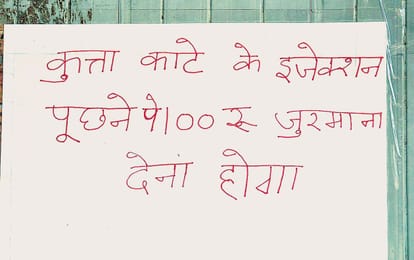 कुत्ता काटे के इजेक्शन
पूछने पे 100 रू जुरमाना
देनां होगा